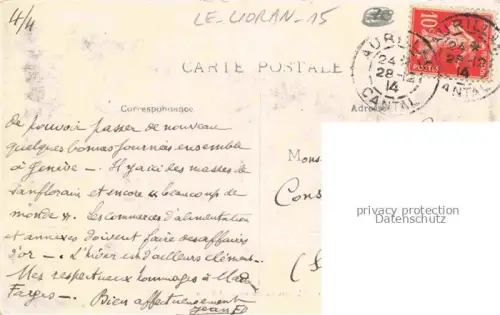 4/4
LE-LIORAN_15
CARTE POSTALE
AURILLAC
24 *
28-12
14
CANTAL
10
POSTES
Correspondance
Adresse
de pouvoir passer de nouveau
quelques bonnes journées ensemble
à Genève –. Il y a ici des masses de
Sanflorain et encore "beaucoup de
monde". Les commerces d'alimentation
et annexes doivent faire des affaires
d'or –. L'hiver est d'ailleurs clément –.
Mes respectueux hommages à Mad
Farges –. Bien affectueusement
Jean
Mons
Cons
privacy protection
Datenschutz